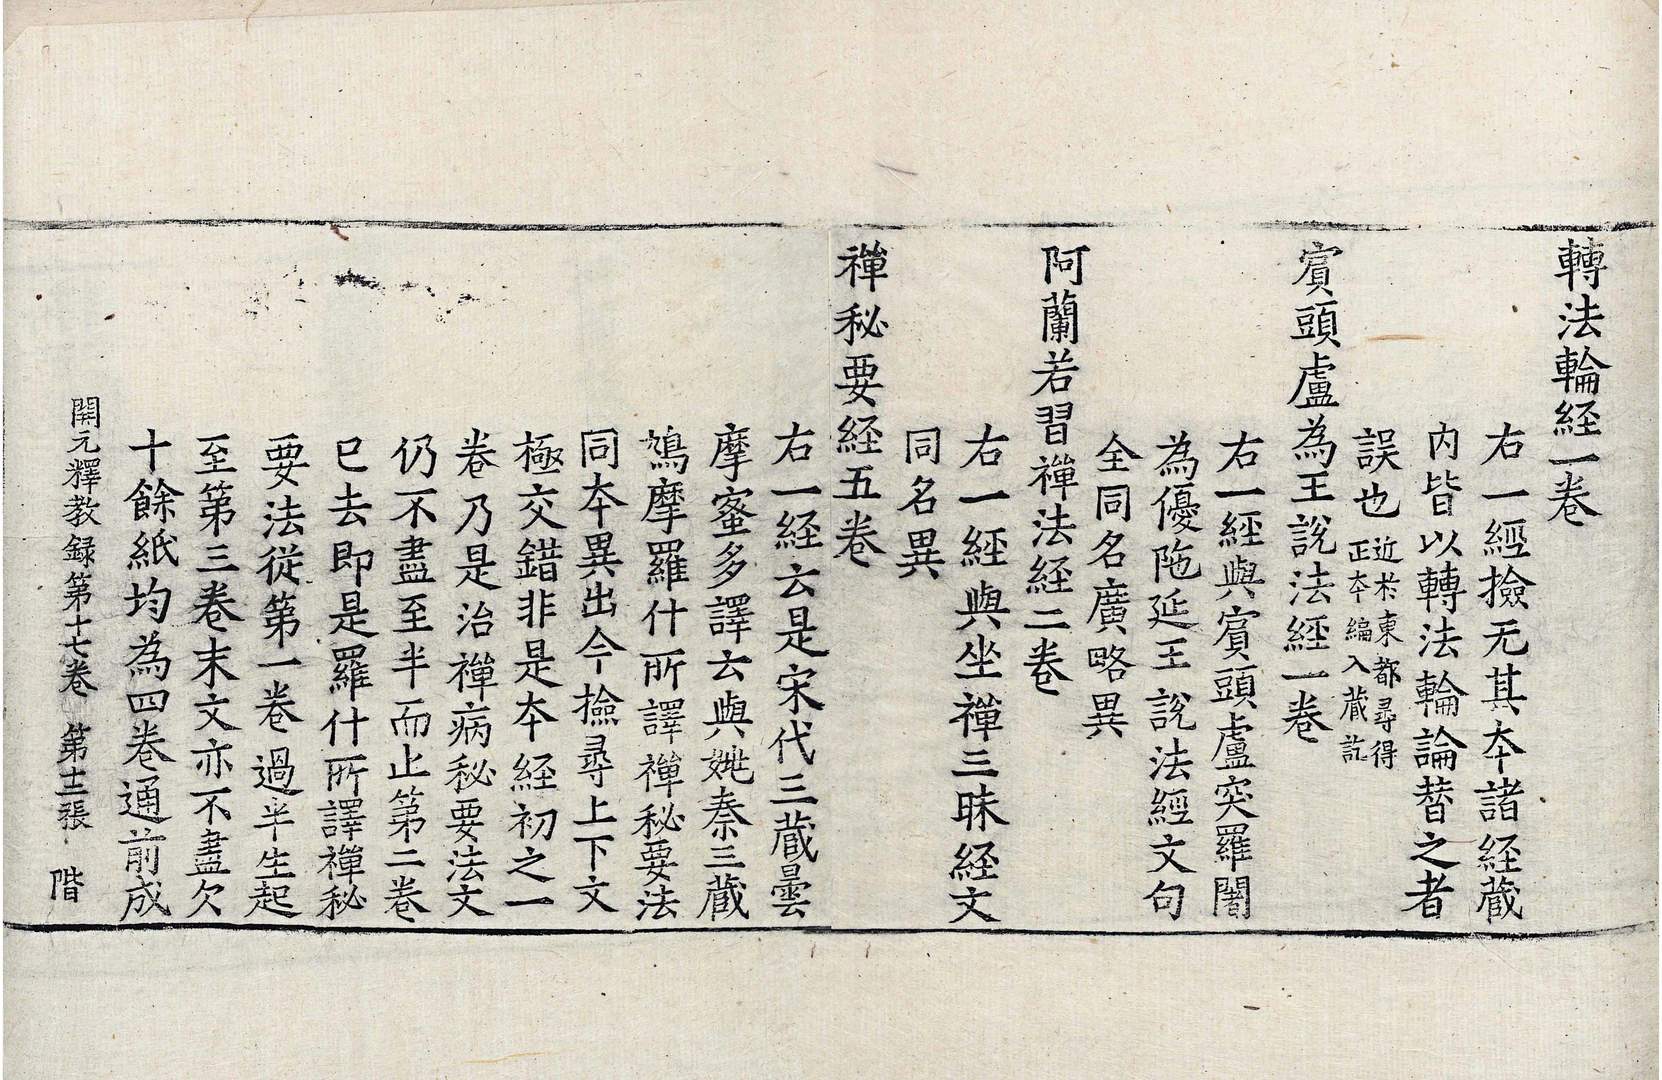 轉法輪経一卷
右一經撿无其夲諸経蔵
内皆以轉法輪論替之者
誤也近於東都尋得
正夲編入蔵訖
賔頭盧為王說法經一卷
右一經與賔頭盧突羅闍
為優陁延王說法經文句
全同名廣略異
阿蘭若習禪法経二卷
右一經與坐禪三昧経文
同名異
禪秘要経五卷
右一経云是宋代三蔵曇
摩蜜多譯云與姚秦三蔵
鳩摩羅什所譯禪秘要法
同夲異出今撿尋上下文
極交錯非是夲経初之一
卷乃是治禪病秘要法文
仍不盡至半而止第二卷
已去即是羅什所譯禪秘
要法從第一卷過半生起
至第三卷末文亦不盡欠
十餘紙均為四卷通前成
開元釋教録第十七卷 第十二張 階